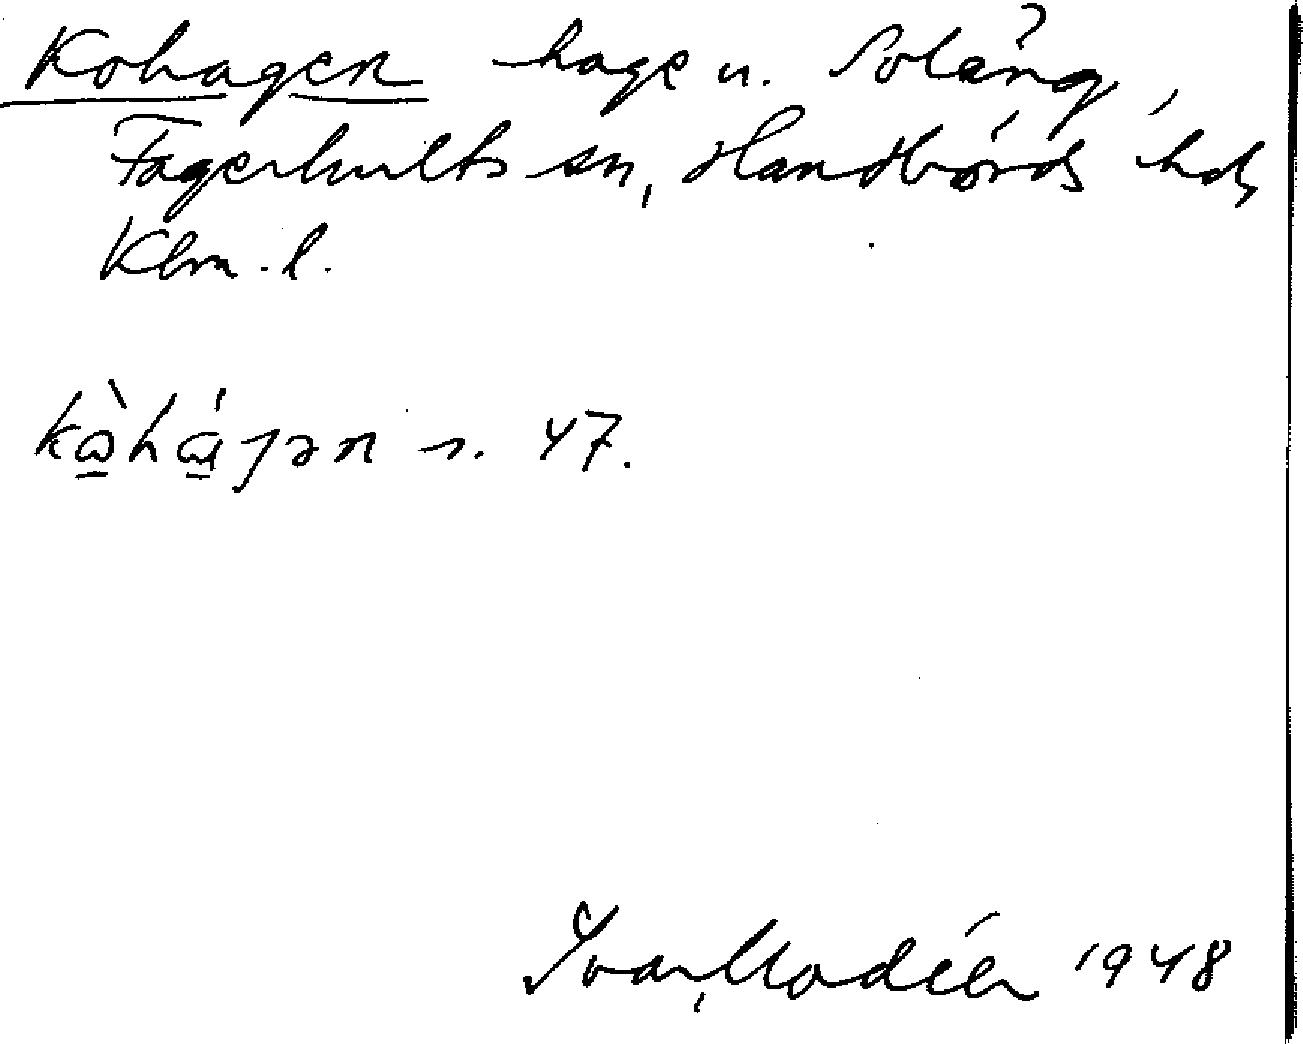 Kohagen hage u. Soläng,
Fagerhults sn, Handbörds hd,
Klm. l.
s. 47.
Ivar Modéer 1948